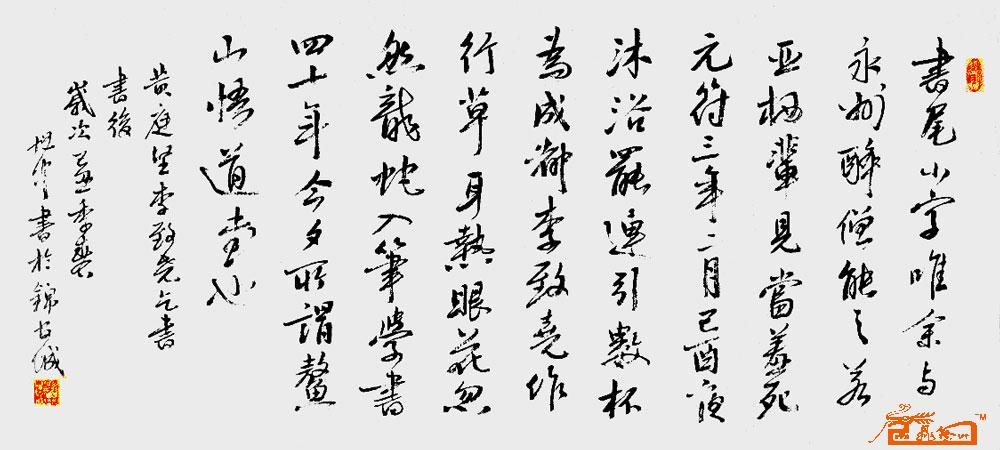 書尾小字唯余与
永州醉僧能之若
亚栖輩見當羞死
元符三年二月己酉夜
沐浴罷連引數杯
為成都李致堯作
行草耳熱眼花忽
然龍蛇入筆學書
四十年今夕所謂鰲
山悟道書也
黄庭坚李致堯乞書
書後
歲次
書於錦官城